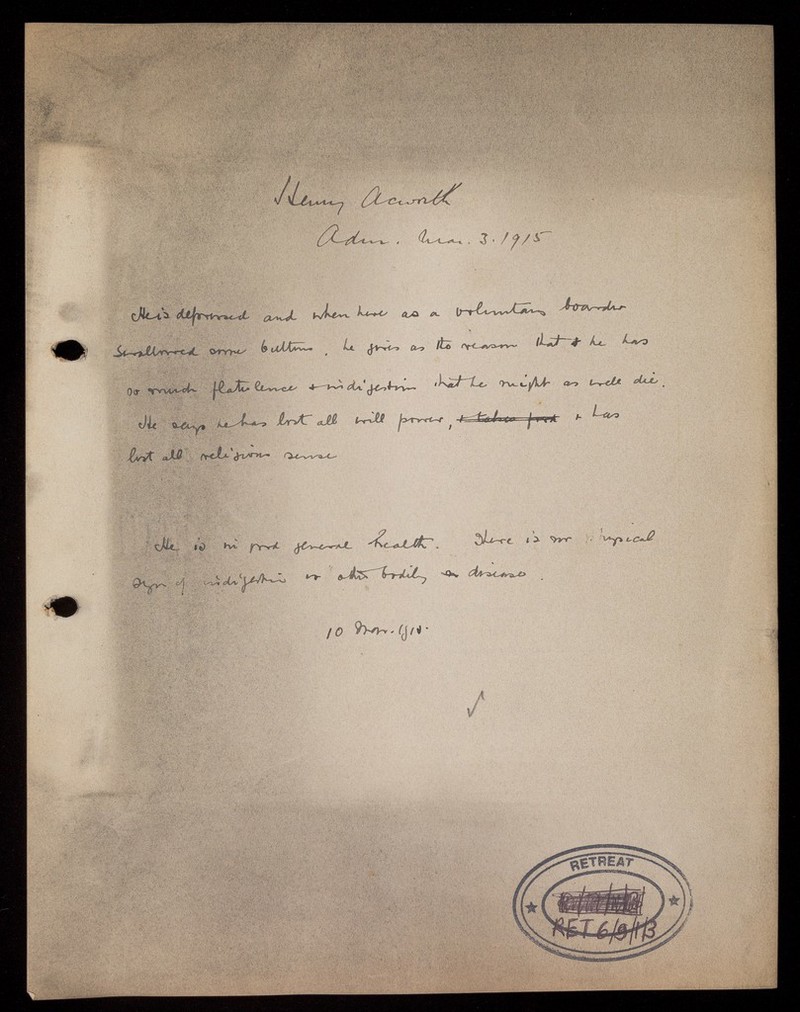 Henry Acworth
Adm. Mar. 3. 1915
He is depressed and when here as a voluntary boarder
swallowed some buttons, he gives as the reason that he has
so much flatulence & indigestion that he might as well die.
He says he has lost all will power, & takes food & has
lost all religious sense
He is in good general health. There is no physical
sign of indigestion or other bodily disease.
10 Mar. 1915.
RETREAT
RET 6/9/1/3